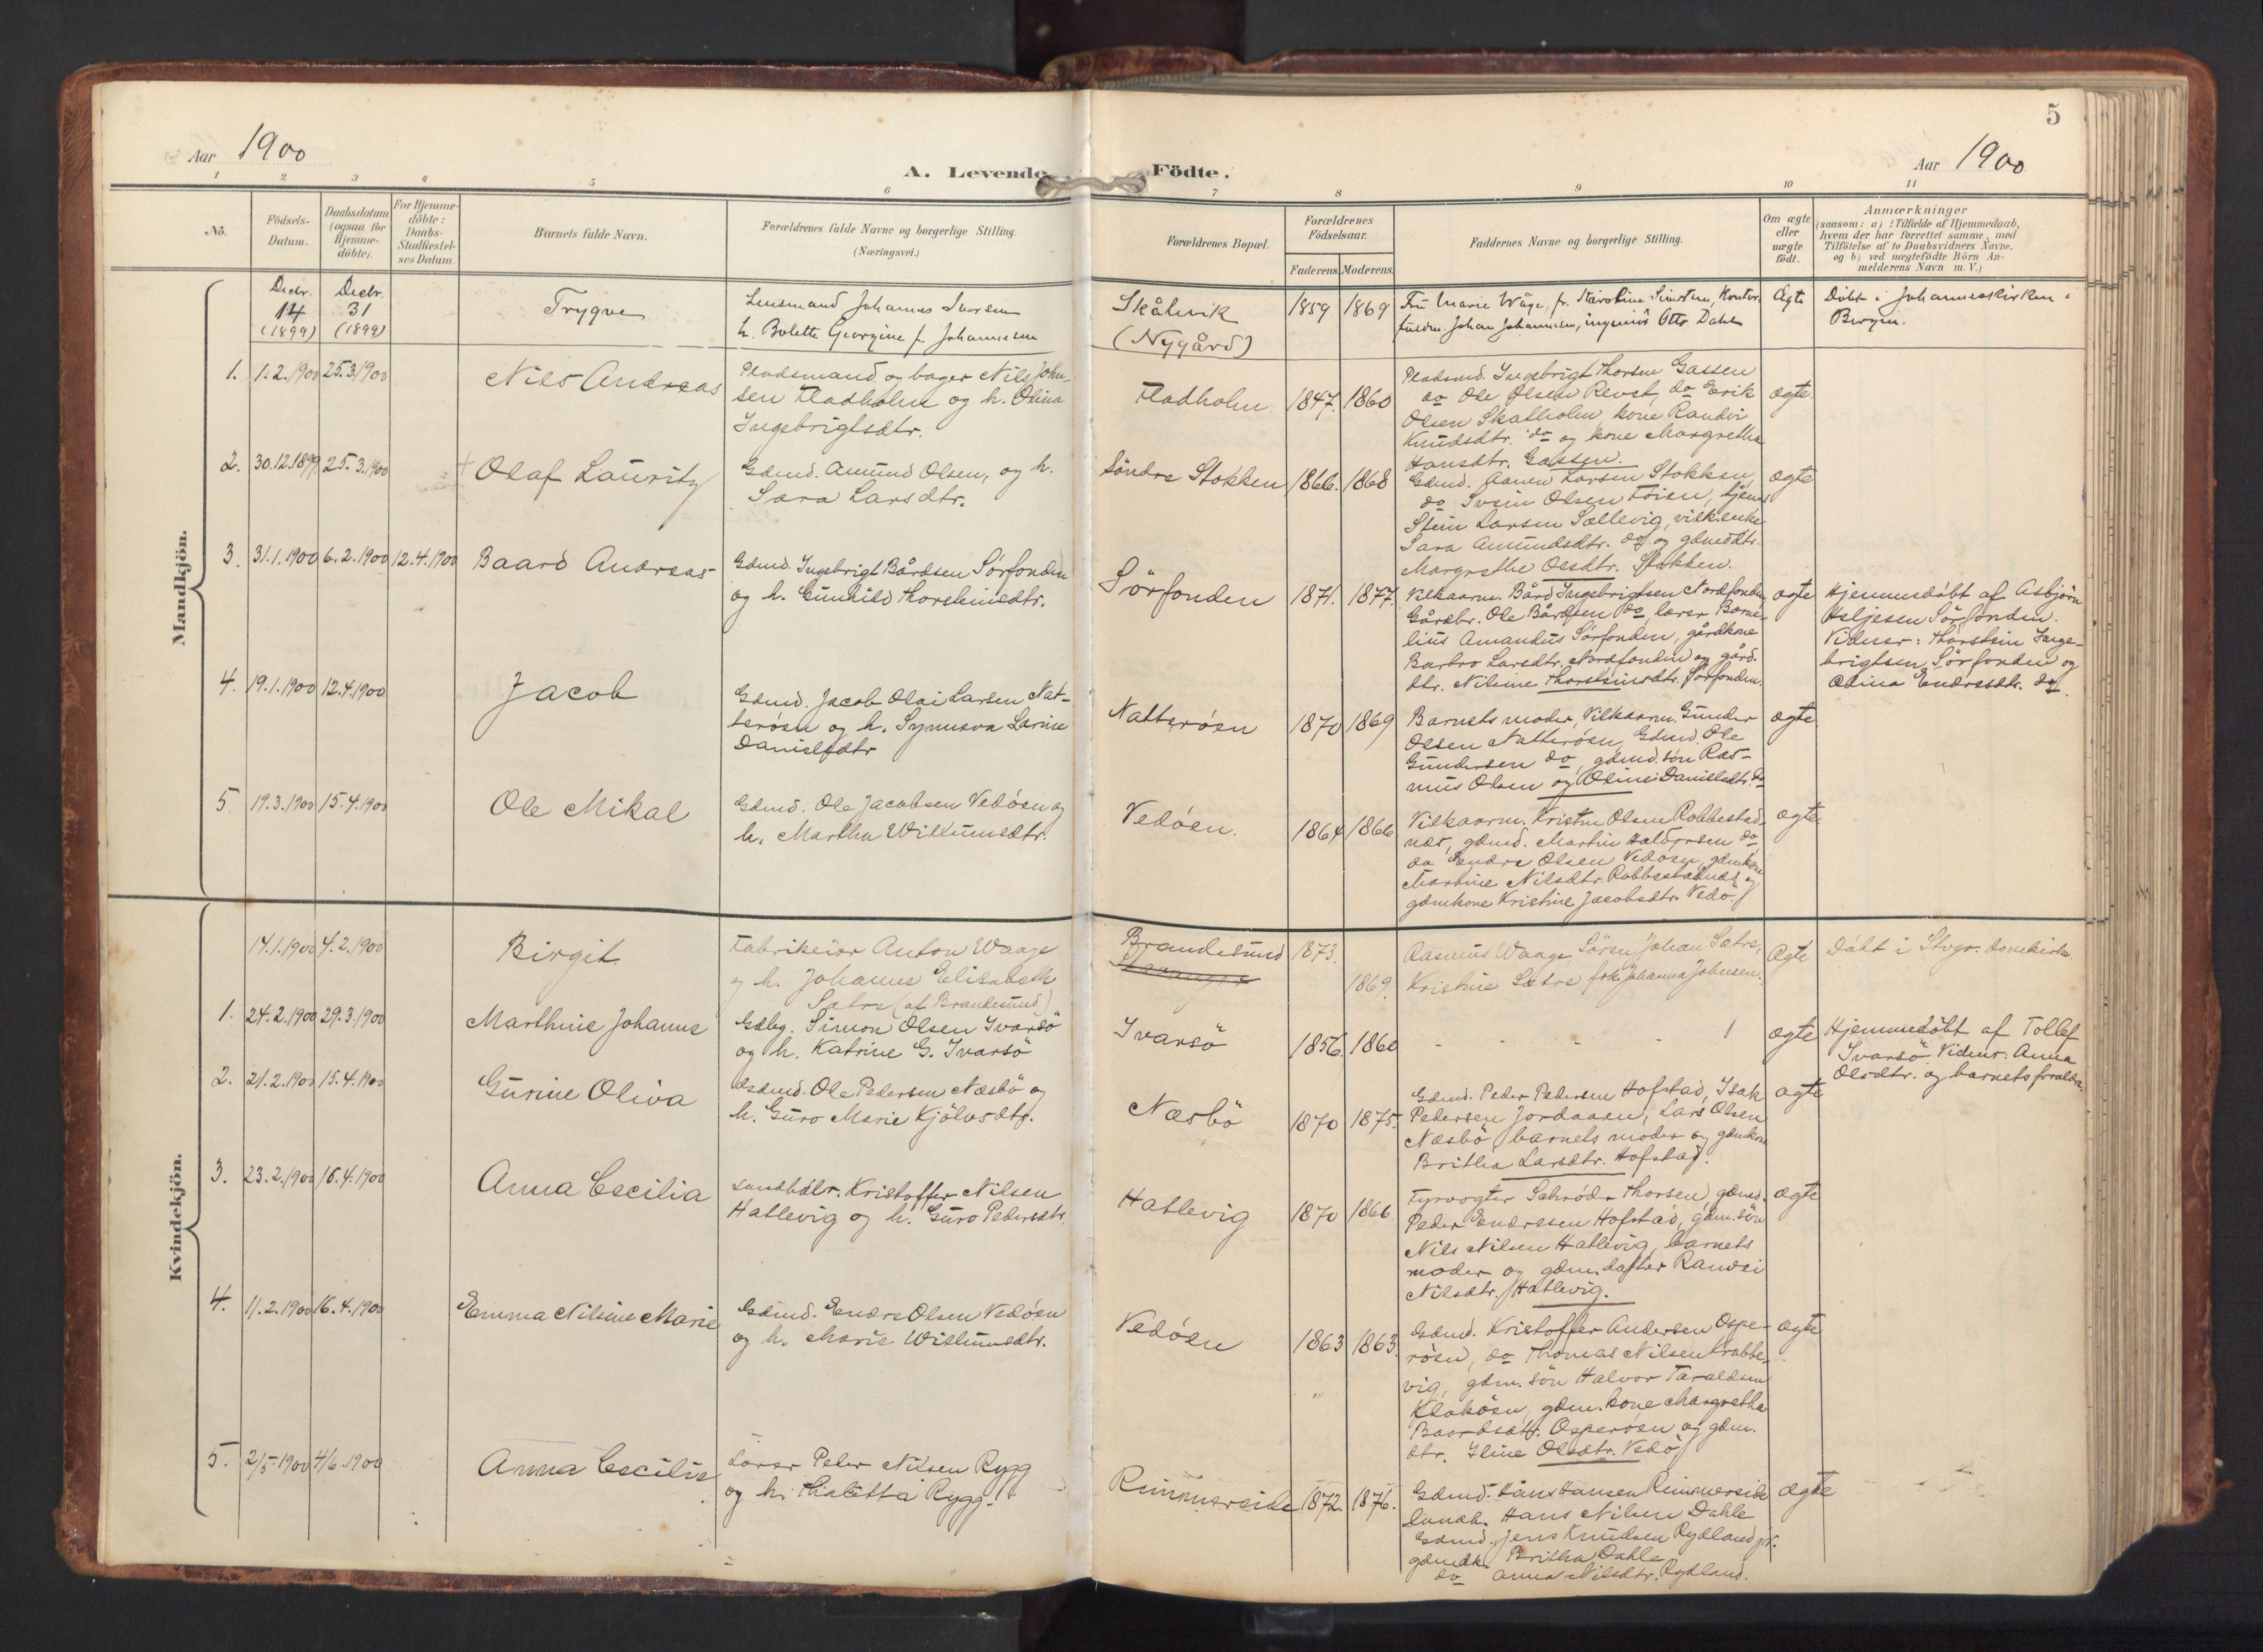 Aar 1900
A. Levende Födte.
Aar 1900
5
1 2 3 4 5 6 7 8 9 10 11
No.
Födsels-Datum.
Daabsdatum (ogsaa for Hjemme-döbte).
For Hjemme-döbte: Daabs-Stadfæstel-ses Datum.
Barnets fulde Navn.
Forældrenes fulde Navne og borgerlige Stilling.
(Næringsvei.)
Forældrenes Bopæl.
Forældrenes Födselsaar.
Faderens. Moderens.
Faddernes Navne og borgerlige Stilling.
Om ægte eller uægte födt.
Anmærkninger
(saasom: a) i Tilfælde af Hjemmedaab,
hvem der har forrettet samme, med
Tilföielse af to Daabsvidners Navne,
og b) ved uægtefödte Börn An-
melderens Navn m. V.)
Mandkjön.
Decbr. 14 (1899)
Decbr. 31 (1899)
Trygve
Lensmand Johannes Iversen
h. Bolette Georgine f. Johannesen
Skålevik
(Nygård)
1859 1869
Fru Marie Våge, fr. Karoline Simonsen, Kontor-
fuldm. Johan Johannesen, ingeniör Otto Dahl
Ægte
Döbt i Johanneskirken i
Bergen.
1. 1.2.1900 25.3.1900
Nils Andreas
Pladsmand og bager Nils John-
sen Fladholm og h. Olina
Ingebrigtsdtr.
Fladholm
1847. 1860
Pladsmd. Ingebrigt Thorsen Gassen
do Ole Olsen Revst, do Erik
Olsen Skatholm kone Randvi
Knudsdtr. do og kone Margretha
Hansdtr. Gassen.
ægte
2. 30.12.1899 25.3.1900
Olaf Lauritz
Gdmd. Amund Olsen, og h.
Sara Larsdtr.
Söndre Stokken
1866. 1868
Gdmd. Aanen Larsen Stokken,
do Svein Olsen Föien, tjener
Stein Larsen Sællevig, vilk.enke
Sara Amundsdtr. do og gdmddtr.
Margrethe Olsdtr. Stokken.
ægte
3. 31.1.1900 6.2.1900 12.4.1900
Baard Andreas
Gdmd. Ingebrigt Bårdsen Sörfonden
og h. Gunhild Thorsteinsdtr.
Sörfonden
1871. 1877.
Vilkaarm. Bård Ingebrigtsen Nordfonden
Gårdbr. Ole Bårdsen do, lærer Borne-
lius Amandus Sörfonden, gårdkone
Barbro Larsdtr. Nordfonden og gård.
dtr. Nilsine Thorsteinsdtr. Sörfonden.
ægte
Hjemmedöbt af Asbjörn
Heljesen Sörfonden.
Vidner: Thorstein Inge-
brigtsen Sörfonden og
Olina Endresdtr. do.
4. 19.1.1900 12.4.1900
Jacob
Gdmd. Jacob Olai Larsen Nat-
terösen og h. Synneva Larine
Danielsdtr
Natterösen
1870 1869
Barnets moder, Vilkaarm. Gunder
Olsen Natterösen, Gdmd. Ole
Gundersen do, gdmd. sön Ras-
mus Olsen og Oline Danielsdtr. do
ægte
5. 19.3.1900 15.4.1900
Ole Mikal
Gdmd. Ole Jacobsen Vedösen og
h. Martha Willumsdtr.
Vedösen.
1864 1866
Vilkaarm. Kristen Olsen Robbestad-
nes, gdmd. Martin Haldorsen do
do Endre Olsen Vedösen, gdmkone
Martine Nilsdtr. Robbestadnes og
gdmkone Kristine Jacobsdtr. Vedö.
ægte
Kvindekjön.
14.1.1900 4.2.1900
Birgit
Fabrikeier Anton Waage
og h. Johanne Elisabeth
Sætre (af Brandesund)
Brandesund
1873. 1869.
Rasmus Waage, Sören Johan Sætre,
Kristine Sætre frk. Johanna Johnsen.
Ægte
Döbt i Stvgr. domkirke.
1. 24.2.1900 29.3.1900
Marthine Johanne
Gdbg. Simon Olsen Ivarsö
og h. Katrine G. Ivarsö
Ivarsö
1856. 1860
ægte
Hjemmedöbt af Tollef
Ivarsö Vidner: Anna
Olsdtr. og barnets forældre.
2. 21.2.1900 15.4.1900
Gurine Oliva
Gdmd. Ole Pedersen Næsbö og
h. Guro Marie Kjölvsdtr.
Næsbö
1870 1875.
Gdmd. Peder Pedersen Hofstad, Isak
Pedersen Jordaaen, Lars Olsen
Næsbö barnets moder og gdmkone
Britha Larsdtr. Hofstad.
ægte
3. 23.2.1900 16.4.1900
Anna Cecilia
Landhdlr. Kristoffer Nilsen
Hatlevig og h. Guro Pedersdtr.
Hatlevig
1870 1866
Fyrvogter Schröder Thorsen, gdmd.
Peder Endresen Hofstad, gdm. sön
Nils Nilsen Hatlevig, barnets
moder og gdm. datter Randvi
Nilsdtr. Hatlevig.
ægte
4. 11.2.1900 16.4.1900
Emma Nilsine Marie
Gdmd. Endre Olsen Vedösen
og h. Marie Willumsdtr.
Vedösen
1863 1863.
Gdmd. Kristoffer Andersen Ospe-
rösen, do Thomas Nilsen Krabbe-
vig, gdm. sön Halvor Taraldsen
Klokösen, gdm. kone Margretha
Baardsdtr. Osperösen og gdm.
dtr. Iline Olsdtr. Vedö
ægte
5. 2/5.1900 4/6.1900
Anna Cecilie
Lærer Peder Nilsen Rygg
og h. Thaletta Rygg.
Rimmereide
1872. 1876.
Gdmd. Hans Hansen Rimmereide
Landh. Hans Nilsen Dahle
Gdmd. Jens Knudsen Rydland jr.
gdmdk. Britha Dahle
do Anna Nilsdtr. Rydland.
ægte